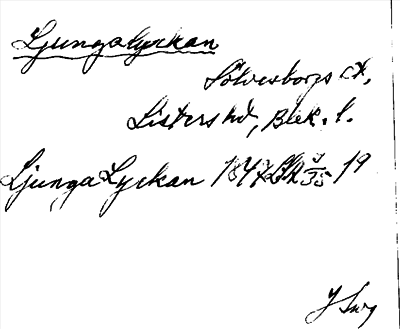 Ljungalyckan
Sölvesborgs
Listers hd, Blek. l.
Ljunga Lyckan 1847 19